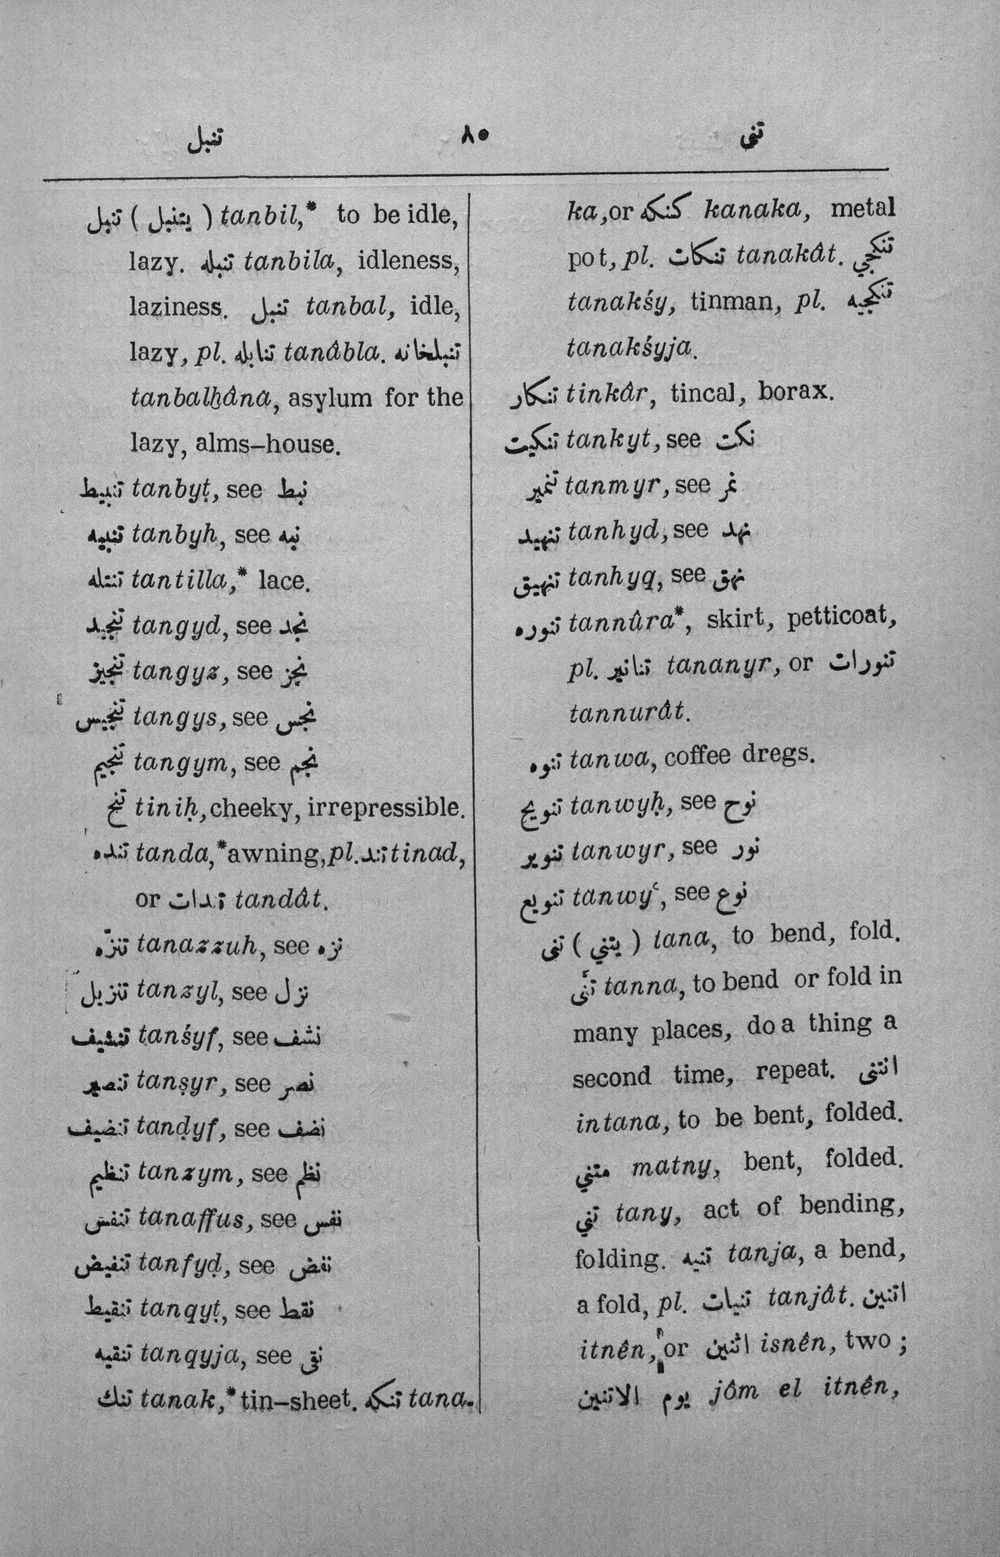 تنبل ٨٥ تني
تنبل ( يتنبل ) tanbil,* to be idle,
lazy. تنبله tanbila, idleness,
laziness. تنبل tanbal, idle,
lazy, pl. تنابله tanâbla. تنبلخانه
tanbalḫâna, asylum for the
lazy, alms–house.
تنبيط tanbyṭ, see نبط
تنبيه tanbyh, see نبه
تنتله tantilla,* lace.
تنجيد tangyd, see نجد
تنجيز tangyz, see نجز
تنجيس tangys, see نجس
تنجيم tangym, see نجم
تنح tiniḥ, cheeky, irrepressible.
تنده tanda,* awning, pl. تند tinad,
or تندات tandât.
تنزّه tanazzuh, see نزه
تنزيل tanzyl, see نزل
تنشيف tanśyf, see نشف
تنصير tanṣyr, see نصر
تنضيف tanḍyf, see نضف
تنظيم tanzym, see نظم
تنفس tanaffus, see نفس
تنفيض tanfyḍ, see نفض
تنقيط tanqyṭ, see نقط
تنقيه tanqyja, see نقى
تنك tanak,* tin–sheet. تنكه tana-
ka, or كنكه kanaka, metal
pot, pl. تنكات tanakât. تنكجي
tanakśy, tinman, pl. تنكجيه
tanakśyja.
تنكار tinkâr, tincal, borax.
تنكيت tankyt, see نكت
تنمير tanmyr, see نمر
تنهيد tanhyd, see نهد
تنهيق tanhyq, see نهق
تنوره tannûra*, skirt, petticoat,
pl. تنانير tananyr, or تنورات
tannurât.
تنوه tanwa, coffee dregs.
تنويح tanwyḥ, see نوح
تنوير tanwyr, see نور
تنويع tanwyʿ, see نوع
تنى ( يتني ) tana, to bend, fold.
تنّى tanna, to bend or fold in
many places, do a thing a
second time, repeat. انتنى
intana, to be bent, folded.
متني matny, bent, folded.
تني tany, act of bending,
folding. تنيه tanja, a bend,
a fold, pl. تنيات tanjât. اتنين
itnên, or اثنين isnên, two ;
يوم الاتنين jôm el itnên,